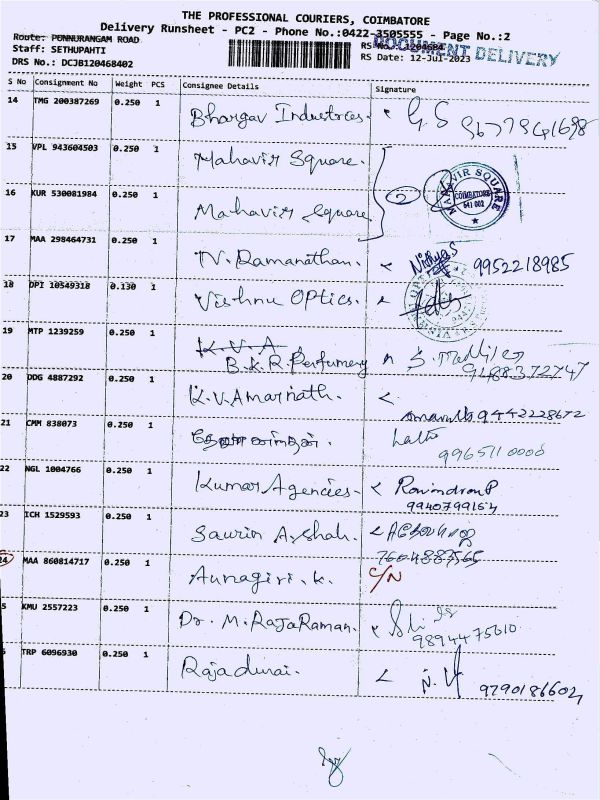 THE PROFESSIONAL COURIERS, COIMBATORE
Delivery Runsheet - PC2 - Phone No.:0422-3505555 - Page No.:2
Route: PONNURANGAM ROAD
Staff: SETHUPAHTI
RS No. 1204684
DOCUMENT DELIVERY
DRS No.: DCJB120468402
RS Date: 12-Jul-2023
S No Consignment No Weight PCS Consignee Details Signature
14 TMG 200387269 0.250 1 Bhargav Industries. G.S
15 VPL 943604503 0.250 1 Mahavir Square. 2
MAHAVIR SQUARE COIMBATORE 641 002
16 KUR 530081984 0.250 1 Mahavir Square
17 MAA 298464731 0.250 1 TV. Ramanathan. 9952218985
18 DPI 10549318 0.130 1 Vishnu Optics.
19 MTP 1239259 0.250 1 K.V.A
B.K.R Perfumery 9488372747
20 DDG 4887292 0.250 1 K.V.Amarnath.
9442228672
21 CMM 838073 0.250 1
9965110000
22 NGL 1004766 0.250 1 Kumar Agencies.
9940799154
23 ICH 1529593 0.250 1 Saurin A.Shah.
7604887565
24 MAA 860814717 0.250 1 Aunagiri.K. C/N
5 KMU 2557223 0.250 1 Dr. M. RajaRaman.
9894475010
TRP 6096930 0.250 1 Rajadurai. 9790186602